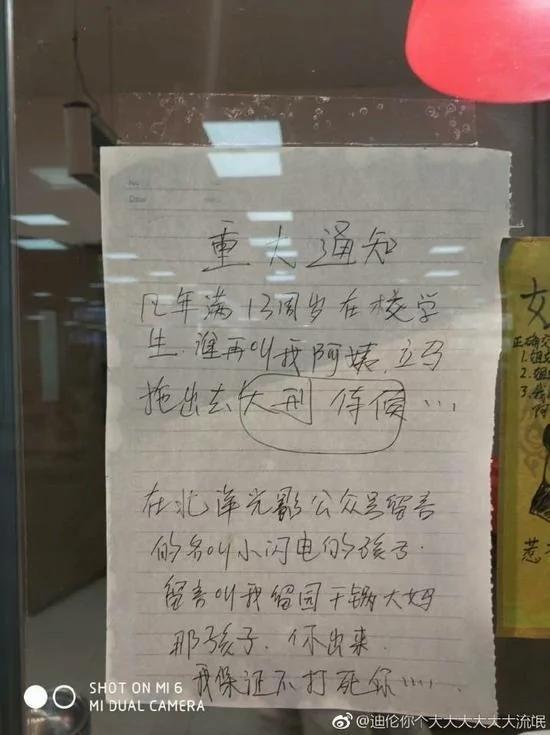 No.
Date
重大通知
凡年满13周岁在校学
生.谁再叫我阿姨.立马
拖出去大刑 侍候…
在北洋光影公众号留言
的名叫小闪电的孩子.
留言叫我留园干锅大妈
那孩子.你出来.
我保证不打死你……
女
正确交
1.姐
2.姐
3.我
阿
惹
SHOT ON MI 6
MI DUAL CAMERA
@迪伦你个大大大大大大流氓